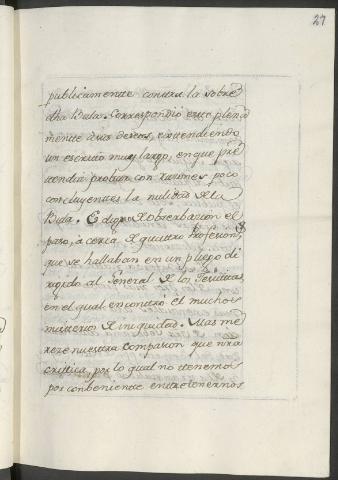 27
publicamente contra la sobre
dha Bula. Correspondió este plena
mente à sus deseos, extendiendo
un escrito muy largo, en que pre
tendia probar con razones poco
concluyentes la nulidad de la
Bula. Es digno de observacion el
paso, à cerca de quattro Profesiones
que se hallaban en un pliego di
rigido al General de los Jesuittas,
en el qual encontró el muchos
misterios de iniquidad. Mas me
reze nuestra compasion que nra
critica, por lo qual no tenemos
por conbeniente entretenernos